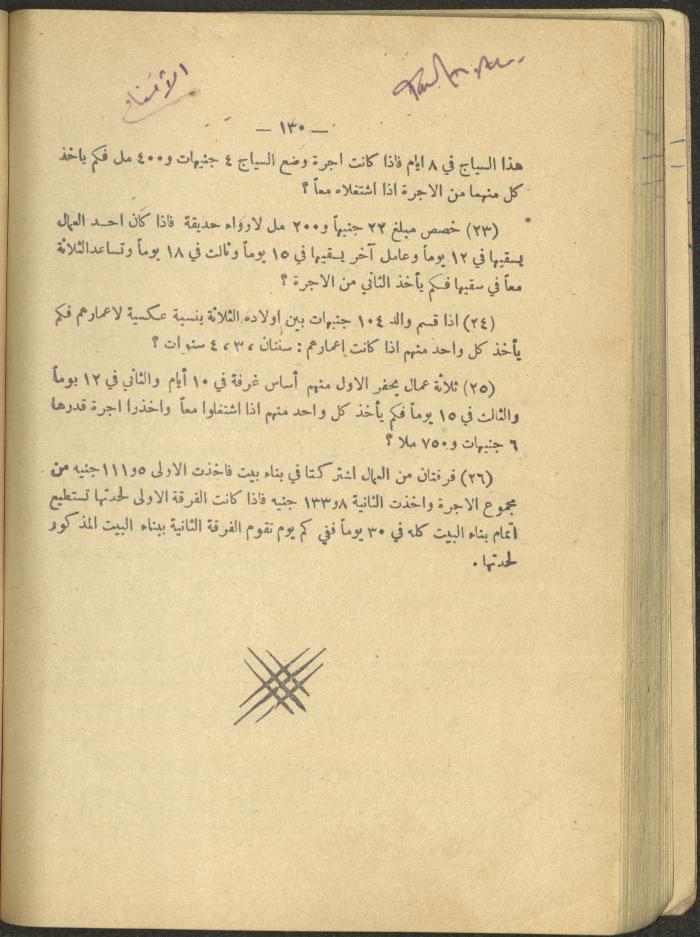 — ١٣٠ —
هذا السياج في ٨ ايام فاذا كانت اجرة وضع السياج ٤ جنيهات و٤٠٠ مل فكم ياخذ
كل منهما من الاجرة اذا اشتغلاه معاً ؟
(٢٣) خصص مبلغ ٢٢ جنيهاً و٢٠٠ مل لارواء حديقة فاذا كان احد العمال
يسقيها في ١٢ يوماً وعامل آخر يسقيها في ١٥ يوماً وثالث في ١٨ يوماً وتساعد الثلاثة
معاً في سقيها فكم يأخذ الثاني من الاجرة ؟
(٢٤) اذا قسم والد ١٠٤ جنيهات بين اولاده الثلاثة بنسبة عكسية لاعمارهم فكم
يأخذ كل واحد منهم اذا كانت إعمارهم : سنتان ، ٣ ، ٤ سنوات ؟
(٢٥) ثلاثة عمال يحفر الاول منهم أساس غرفة في ١٠ أيام والثاني في ١٢ يوماً
والثالث في ١٥ يوماً فكم يأخذ كل واحد منهم اذا اشتغلوا معاً واخذرا اجرة قدرها
٦ جنيهات و٧٥٠ ملا ؟
(٢٦) فرقتان من العمال اشتركتا في بناء بيت فاخذت الاولى ١١١و٥ جنيه من
مجموع الاجرة واخذت الثانية ١٣٣و٨ جنيه فاذا كانت الفرقة الاولى لحدتها تستطيع
اتمام بناء البيت كله في ٣٠ يوماً ففي كم يوم تقوم الفرقة الثانية ببناء البيت المذكور
لحدتها .